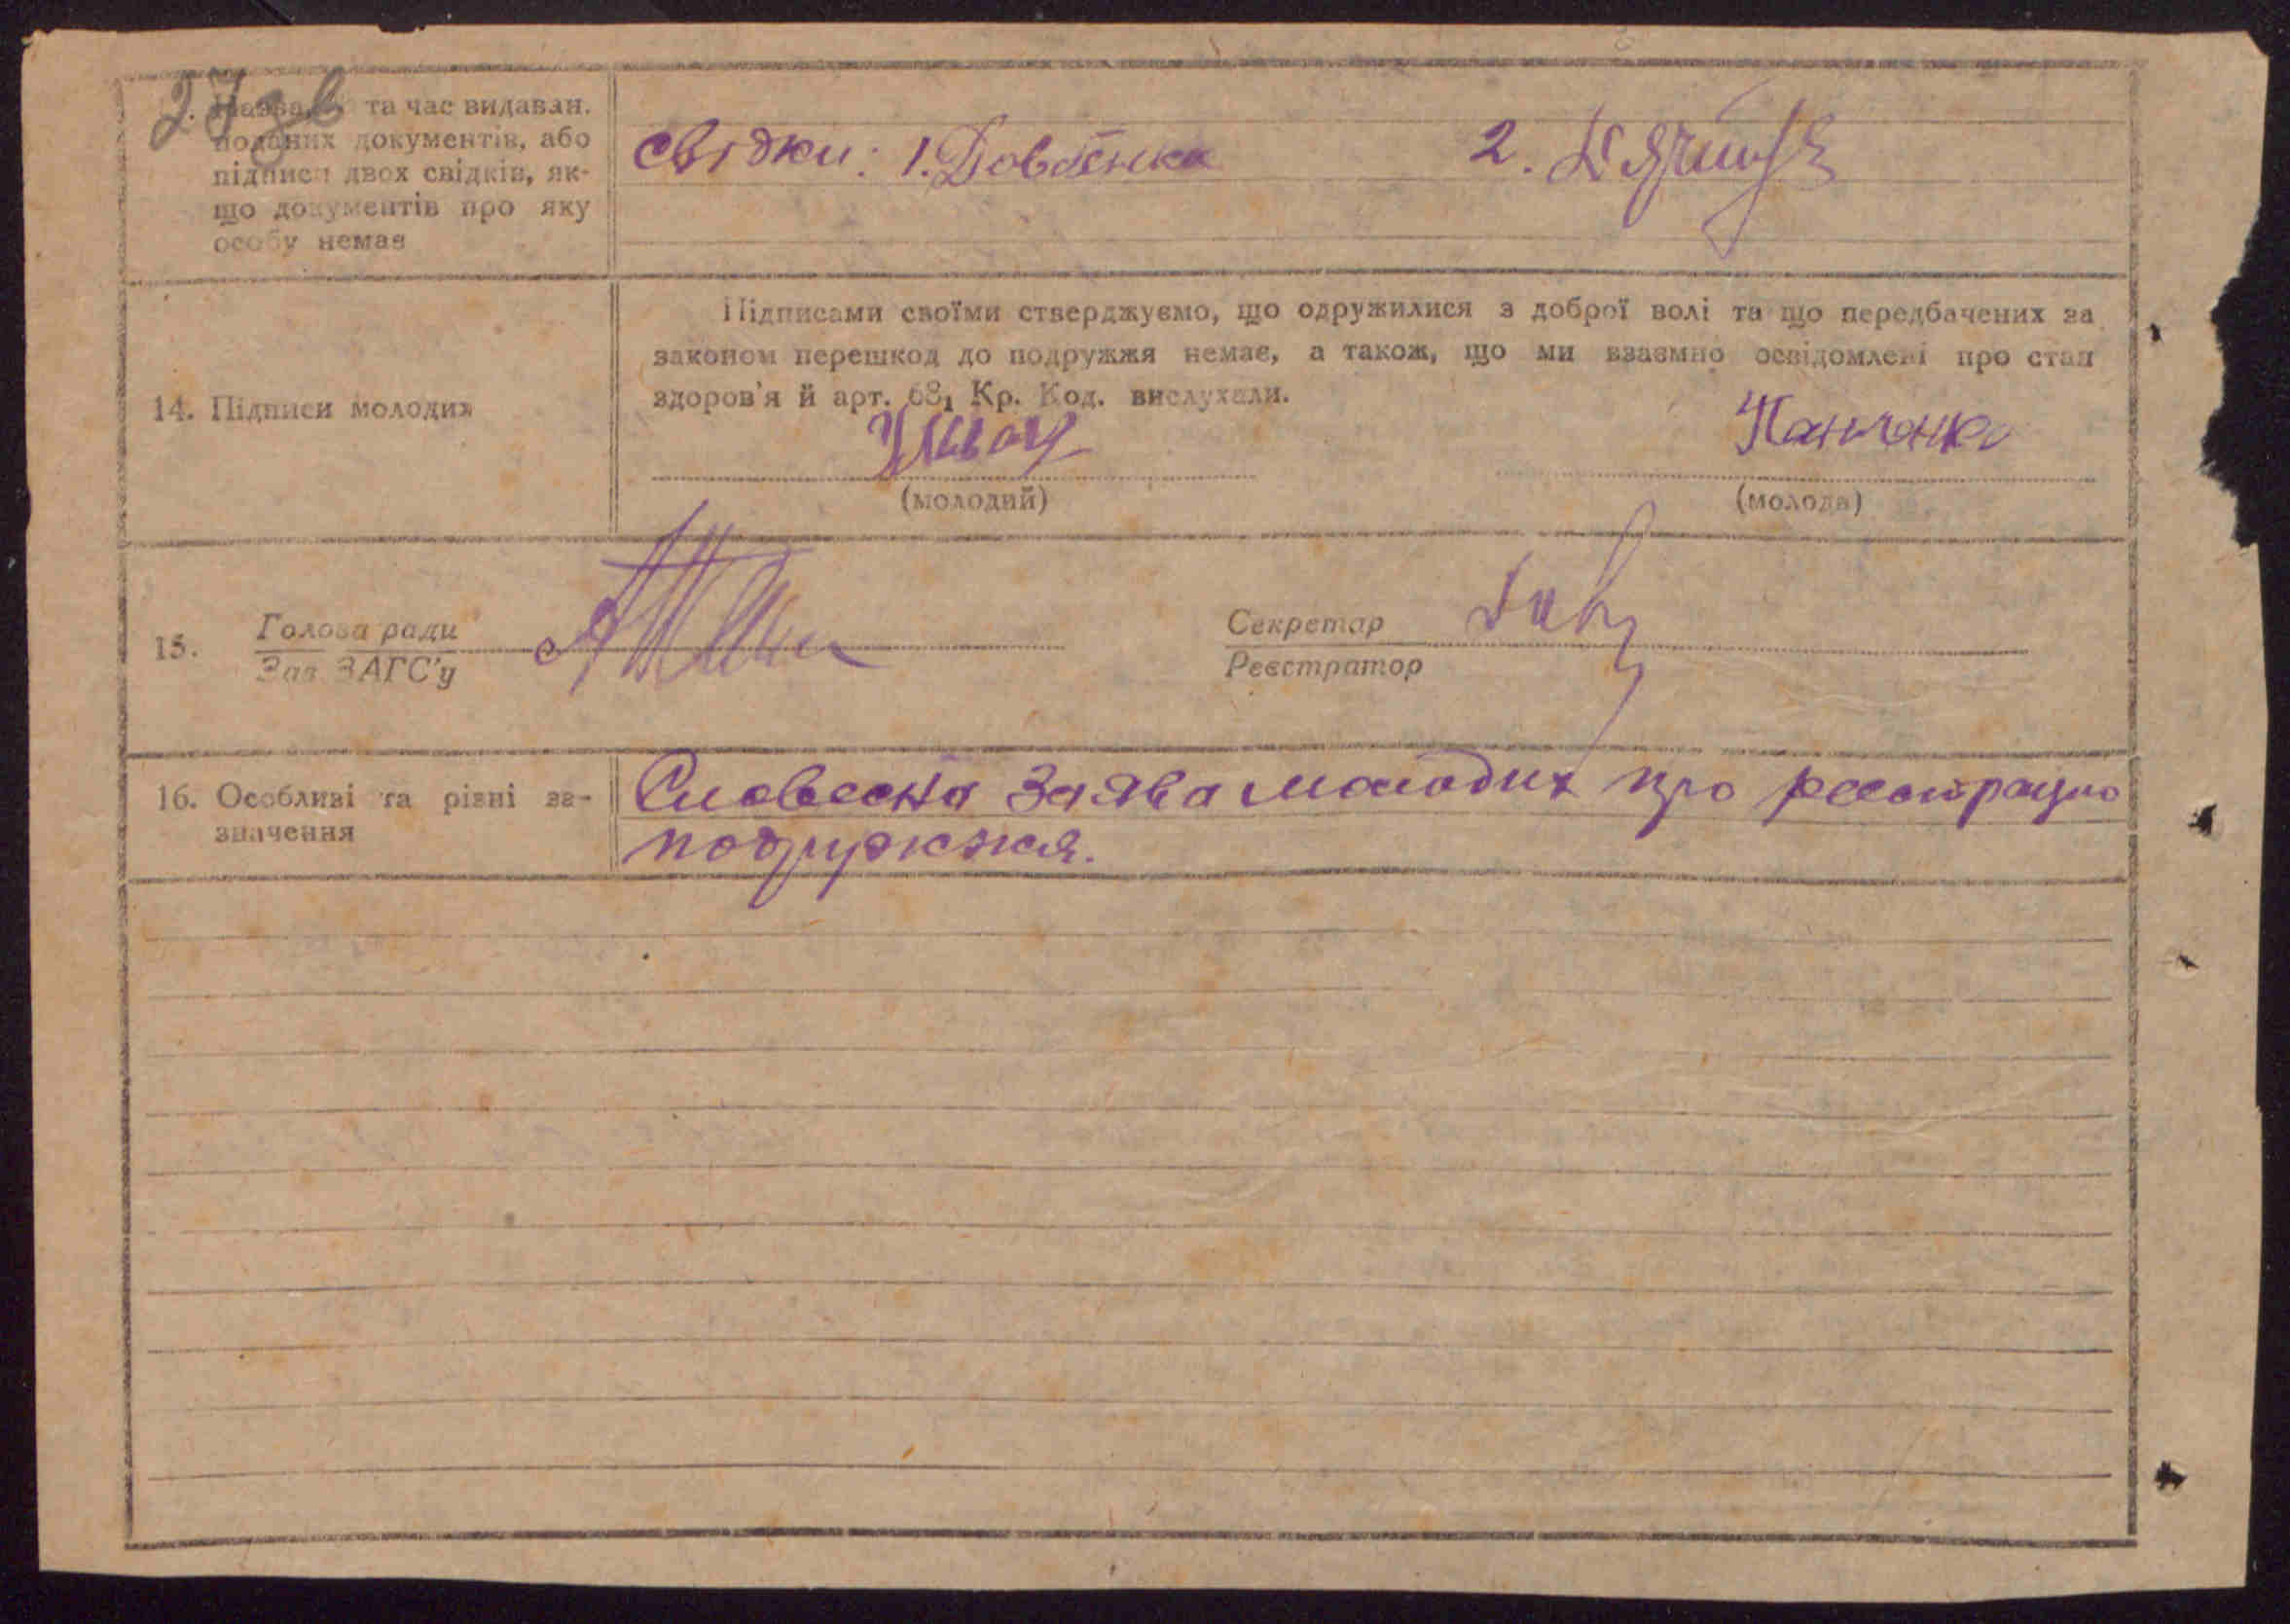 27 зв
Назва, та час видаван.
поданих документів, або
підписи двох свідків, як-
що документів про яку
особу немає
свідки: 1. Довбенка 2.
14. Підписи молодих
Підписами своїми стверджуємо, що одружилися з доброї волі та що передбачених за
законом перешкод до подружжя немає, а також, що ми взаємно освідомлені про стан
здоров'я й арт. 68₁ Кр. Код. вислухали.
Панченко
(молодий) (молода)
15. Голова ради Секретар
Зав ЗАГС'у Реєстратор
16. Особливі та різні за-
значення
Словесна заява молодих про реєстрацію
подружжя.